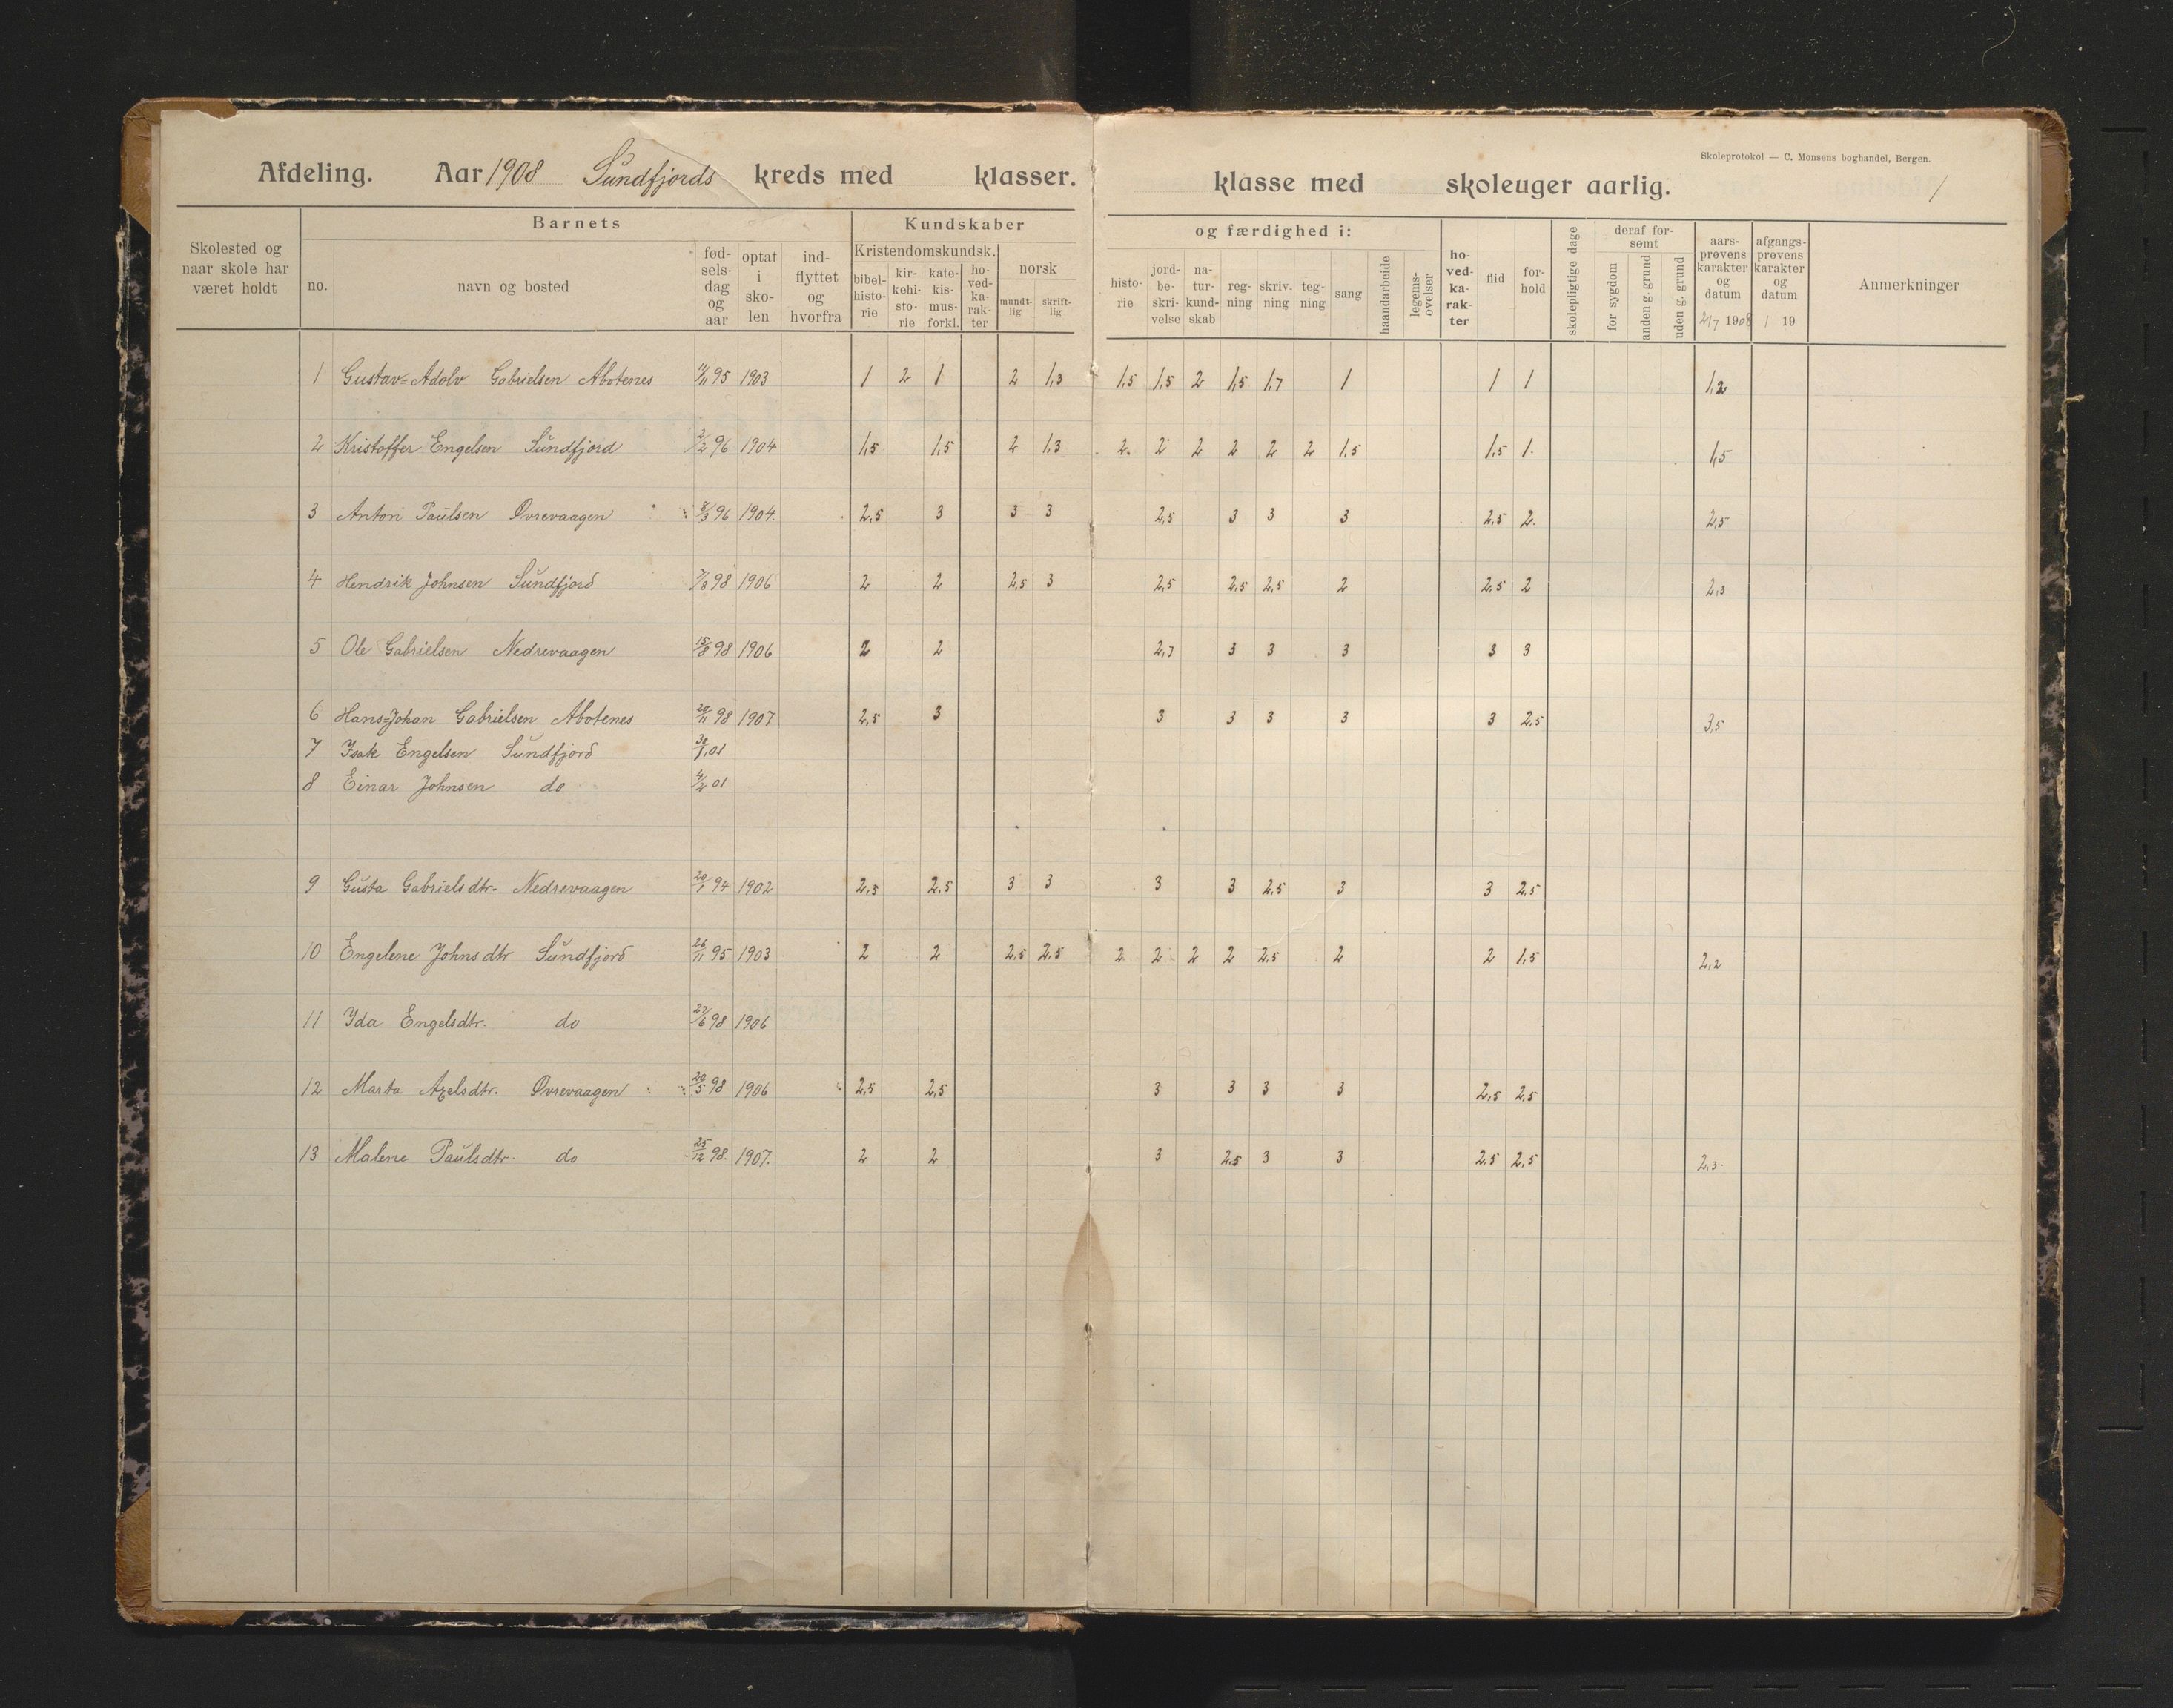 Afdeling. Aar 1908 Sundfjords kreds med klasser. klasse med skoleuger aarlig.
Skoleprotokol — C. Monsens boghandel, Bergen.
1
Skolested og naar skole har været holdt
Barnets
no.
navn og bosted
fød-sels-dag og aar
optat i sko-len
ind-flyttet og hvorfra
Kundskaber
Kristendomskundsk.
bibel-histo-rie
kir-kehi-sto-rie
kate-kis-mus-forkl.
ho-ved-ka-rak-ter
norsk
mundt-lig
skrift-lig
og færdighed i:
histo-rie
jord-be-skri-velse
na-tur-kund-skab
reg-ning
skriv-ning
teg-ning
sang
haandarbeide
legems-øvelser
ho-ved-ka-rak-ter
flid
for-hold
skolepligtige dage
deraf for-sømt
for sygdom
anden g. grund
uden g. grund
aars-prøvens karakter og datum
2/7 1908
afgangs-prøvens karakter og datum
/ 19
Anmerkninger
1 Gustav=Adolv Gabrielsen Abotenes 11/11 95 1903 1 2 1 2 1,3 1,5 1,5 2 1,5 1,7 1 1 1 1,2
2 Kristoffer Engelsen Sundfjord 2/2 96 1904 1,5 1,5 2 1,3 2 2 2 2 2 2 1,5 1,5 1 1,5
3 Anton Paulsen Øvrevaagen 8/3 96 1904 2,5 3 3 3 2,5 3 3 3 2,5 2 2,5
4 Hendrik Johnsen Sundfjord 7/8 98 1906 2 2 2,5 3 2,5 2,5 2,5 2 2,5 2 2,3
5 Ole Gabrielsen Nedrevaagen 15/8 98 1906 2 2 2,7 3 3 3 3 3
6 Hans=Johan Gabrielsen Abotenes 20/11 98 1907 2,5 3 3 3 3 3 3 2,5 3,5
7 Isak Engelsen Sundfjord 30/1 01
8 Einar Johnsen do 4/2 01
9 Gusta Gabrielsdtr. Nedrevaagen 20/1 94 1902 2,5 2,5 3 3 3 3 2,5 3 3 2,5
10 Engelene Johnsdtr Sundfjord 26/11 95 1903 2 2 2,5 2,5 2 2 2 2 2,5 2 2 1,5 2,2
11 Ida Engelsdtr. do 27/6 98 1906
12 Marta Axelsdtr. Øvrevaagen 20/5 98 1906 2,5 2,5 3 3 3 3 2,5 2,5
13 Malene Paulsdtr. do 25/12 98. 1907. 2 2 3 2,5 3 3 2,5 2,5 2,3